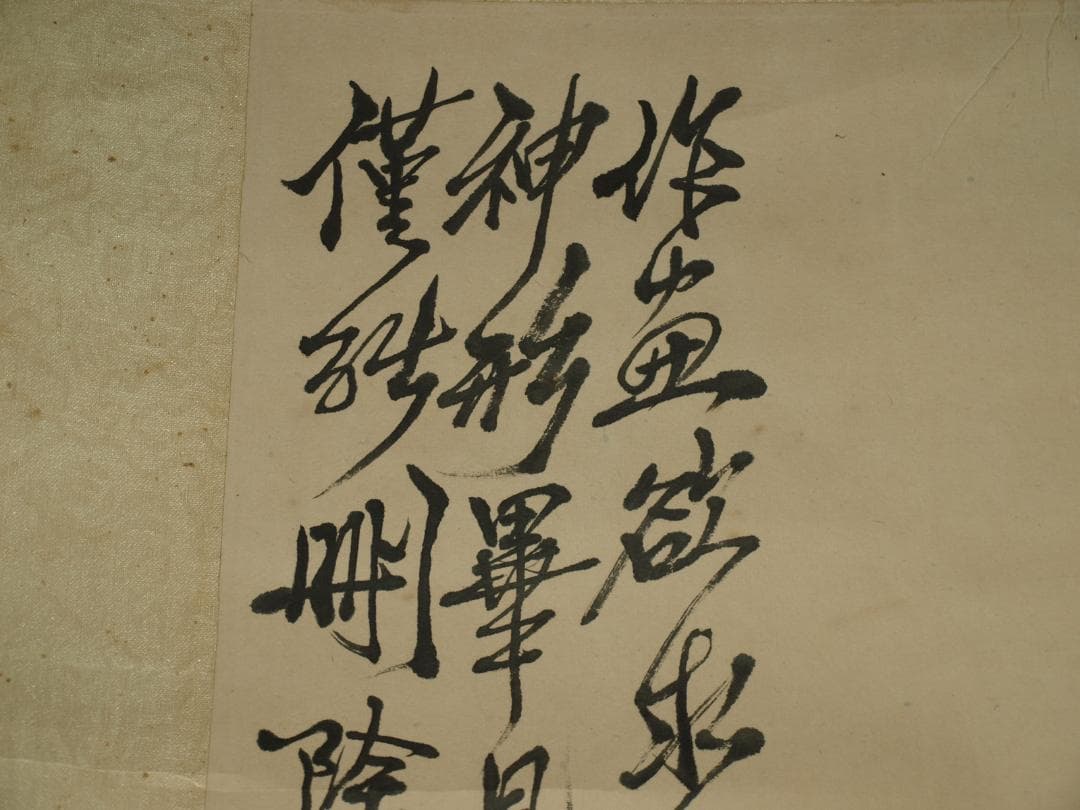 作畫欲求
神形畢具
僅能刪除